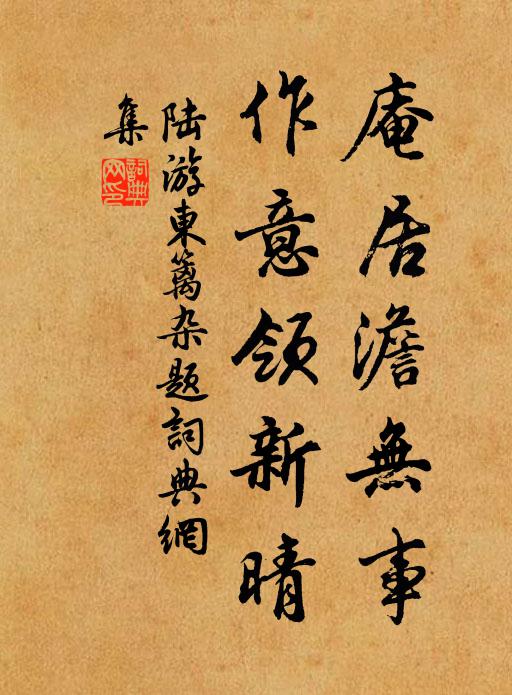 庵居澹無事
作意領新晴
陸游東籬杂题詞典網
集
詞典網印